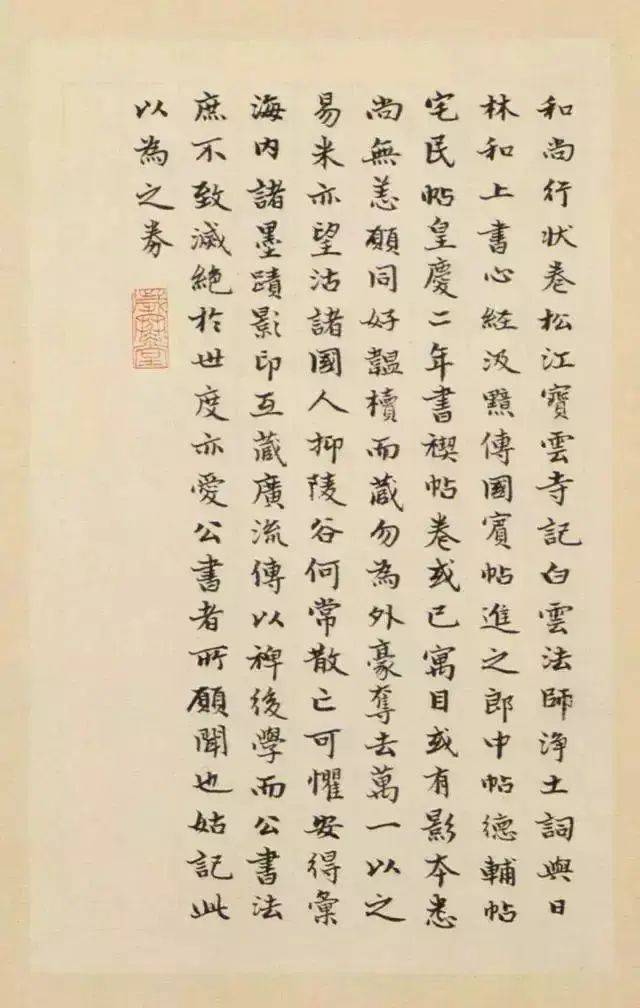 和尚行状卷松江寶雲寺記白雲法師淨土詞與日
林和上書心經汲黯傳國賓帖進之郎中帖德輔帖
宅民帖皇慶二年書禊帖卷或已寓目或有影本悉
尚無恙願同好韞櫝而藏勿為外豪奪去萬一以之
易米亦望沽諸國人抑陵谷何常散亡可懼安得彙
海内諸墨蹟影印互蔵廣流傳以裨後學而公書法
庶不致滅絕於世度亦愛公書者所願聞也姑記此
以為之券